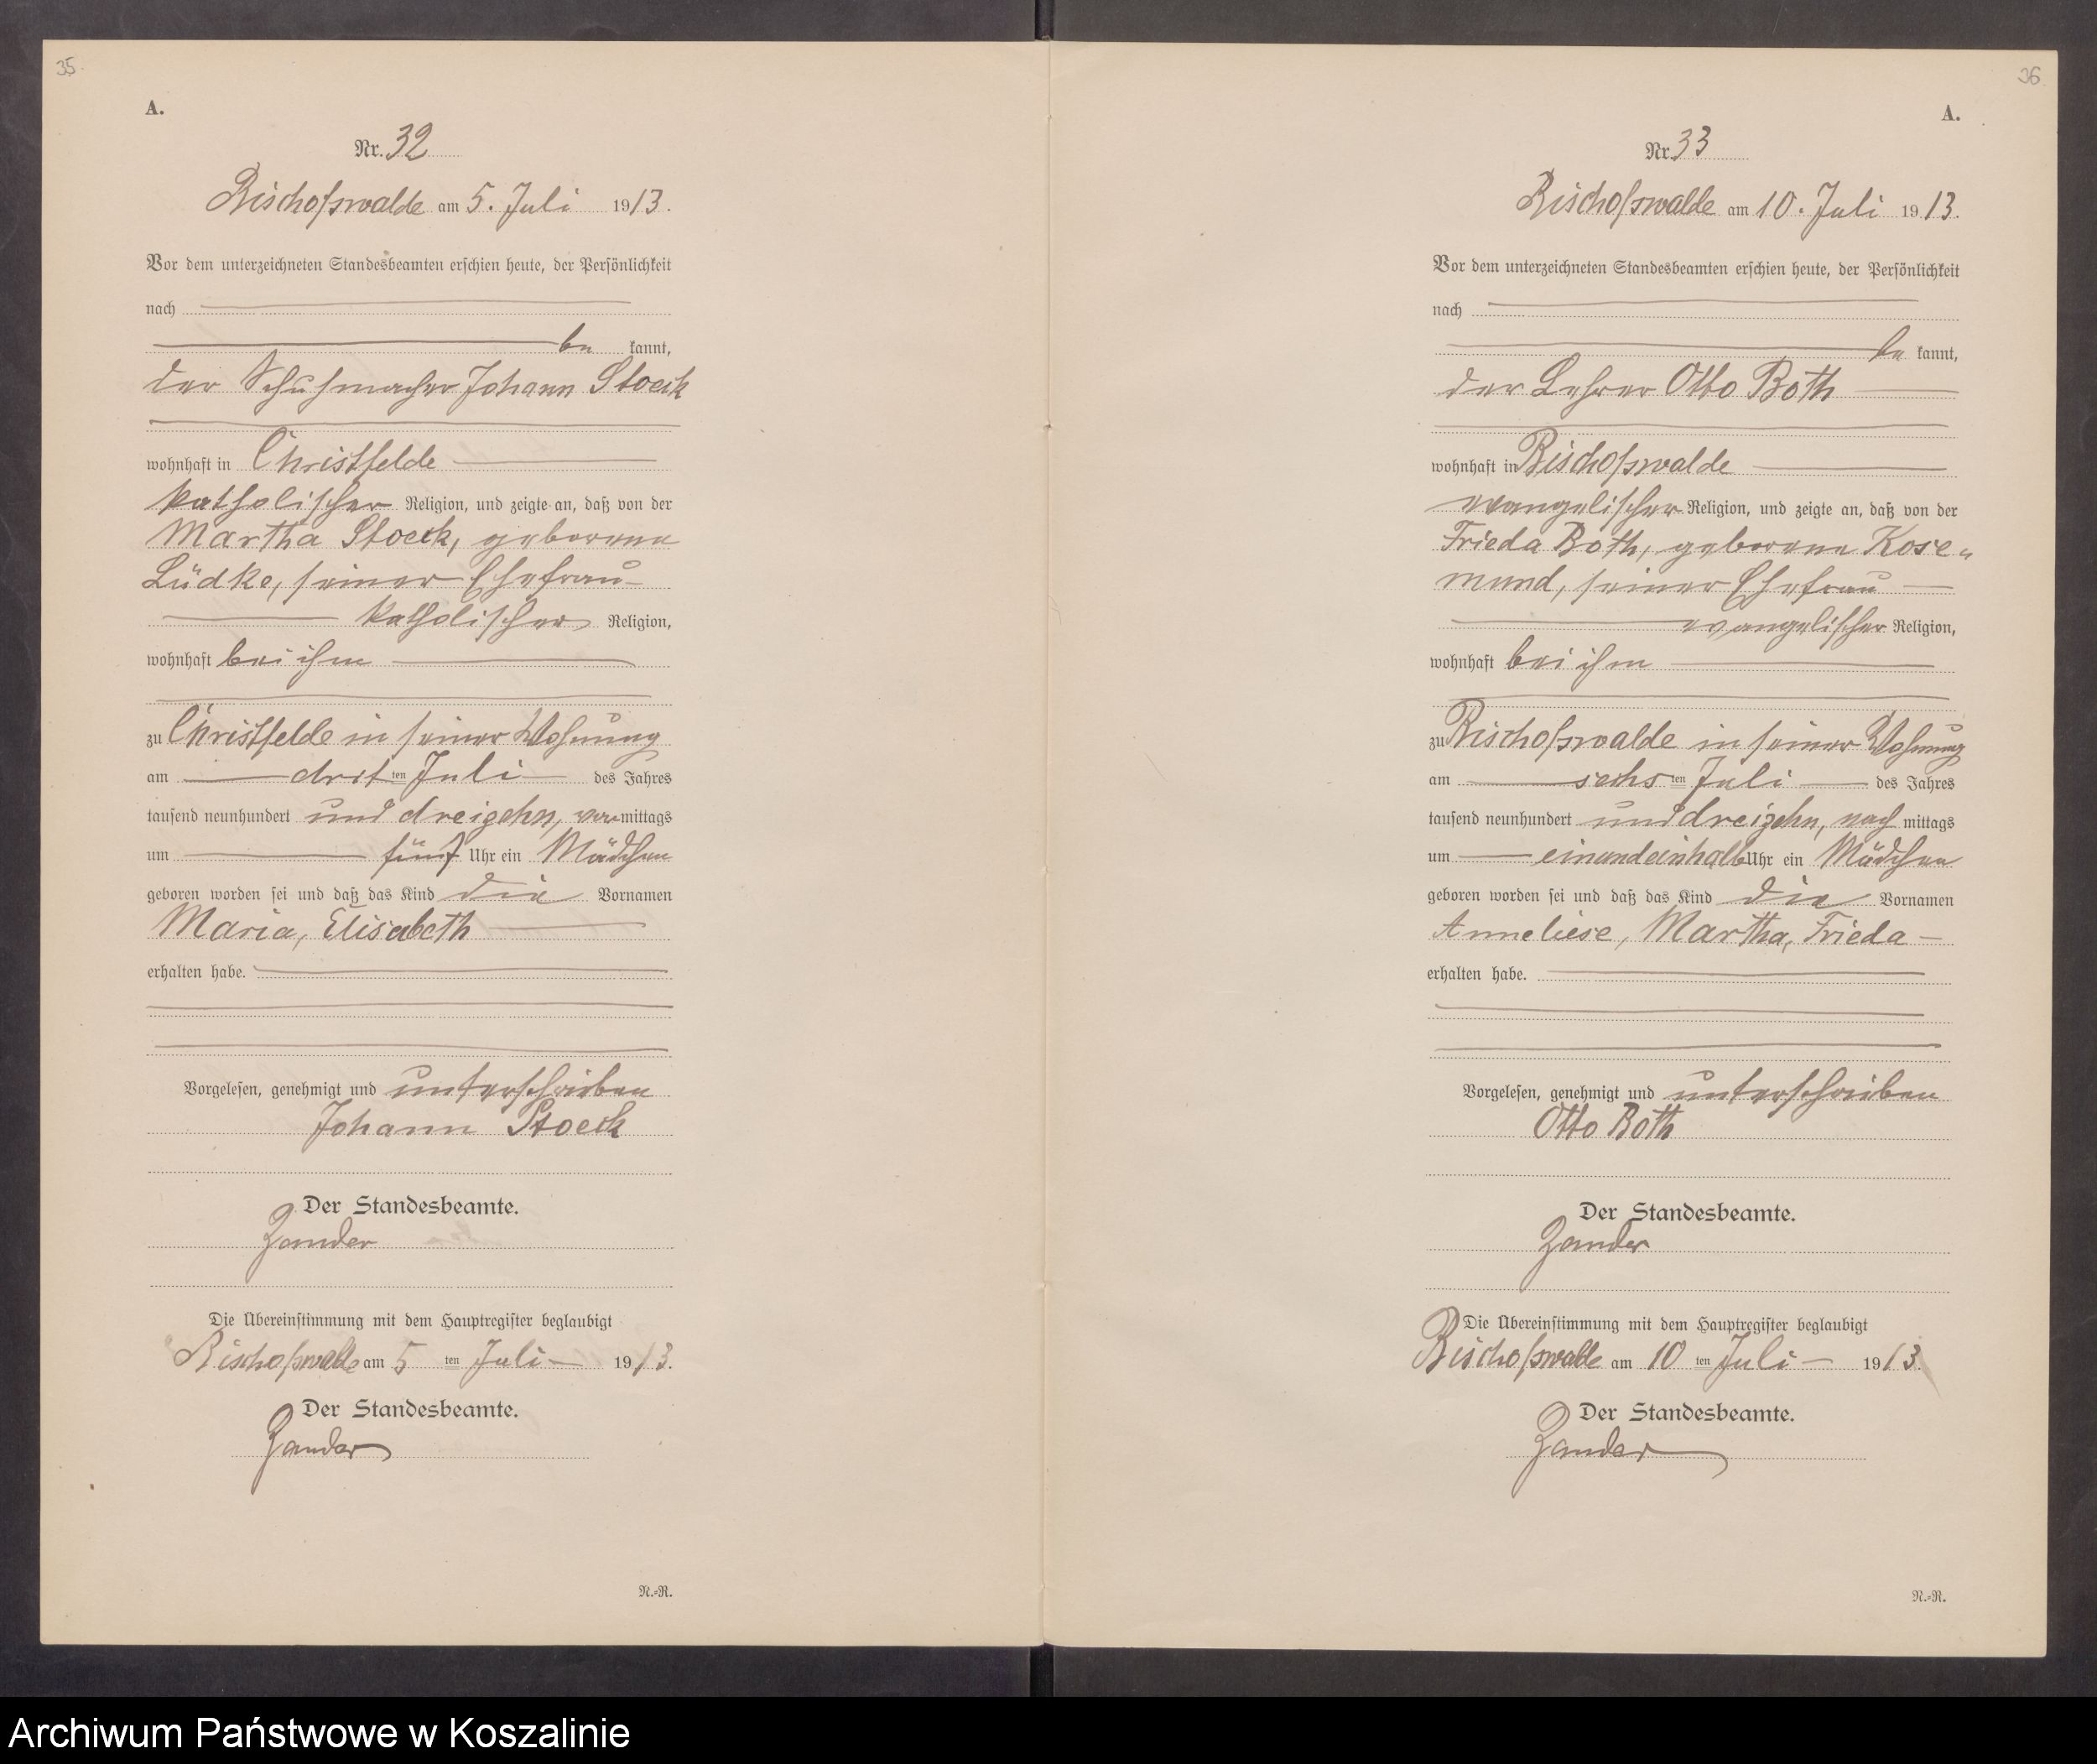 35.
A.
Nr. 32
Bischofswalde am 5. Juli 1913.
Vor dem unterzeichneten Standesbeamten erschien heute, der Persönlichkeit
nach
be kannt,
der Schuhmacher Johann Stoeck
wohnhaft in Christfelde
katholischer Religion, und zeigte an, daß von der
Martha Stoeck, geborene
Lüdke, seiner Ehefrau
katholischer Religion,
wohnhaft bei ihm
zu Christfelde in seiner Wohnung
am drit ten Juli des Jahres
tausend neunhundert und dreizehn, vor mittags
um fünf Uhr ein Mädchen
geboren worden sei und daß das Kind die Vornamen
Maria, Elisabeth
erhalten habe.
Vorgelesen, genehmigt und unterschrieben
Johann Stoeck
Der Standesbeamte.
Zander
Die Übereinstimmung mit dem Hauptregister beglaubigt
Bischofswalde am 5 ten Juli 1913.
Der Standesbeamte.
Zander
N.-R.
36
A.
Nr. 33
Bischofswalde am 10. Juli 1913.
Vor dem unterzeichneten Standesbeamten erschien heute, der Persönlichkeit
nach
be kannt,
der Lehrer Otto Both
wohnhaft in Bischofswalde
evangelischer Religion, und zeigte an, daß von der
Frieda Both, geborene Kose-
mund, seiner Ehefrau
evangelischer Religion,
wohnhaft bei ihm
zu Bischofswalde in seiner Wohnung
am sechs ten Juli des Jahres
tausend neunhundert und dreizehn, nach mittags
um einundeinhalb Uhr ein Mädchen
geboren worden sei und daß das Kind die Vornamen
Anneliese, Martha, Frieda
erhalten habe.
Vorgelesen, genehmigt und unterschrieben
Otto Both
Der Standesbeamte.
Zander
Die Übereinstimmung mit dem Hauptregister beglaubigt
Bischofswalde am 10 ten Juli 1913.
Der Standesbeamte.
Zander
N.-R.
Archiwum Państwowe w Koszalinie